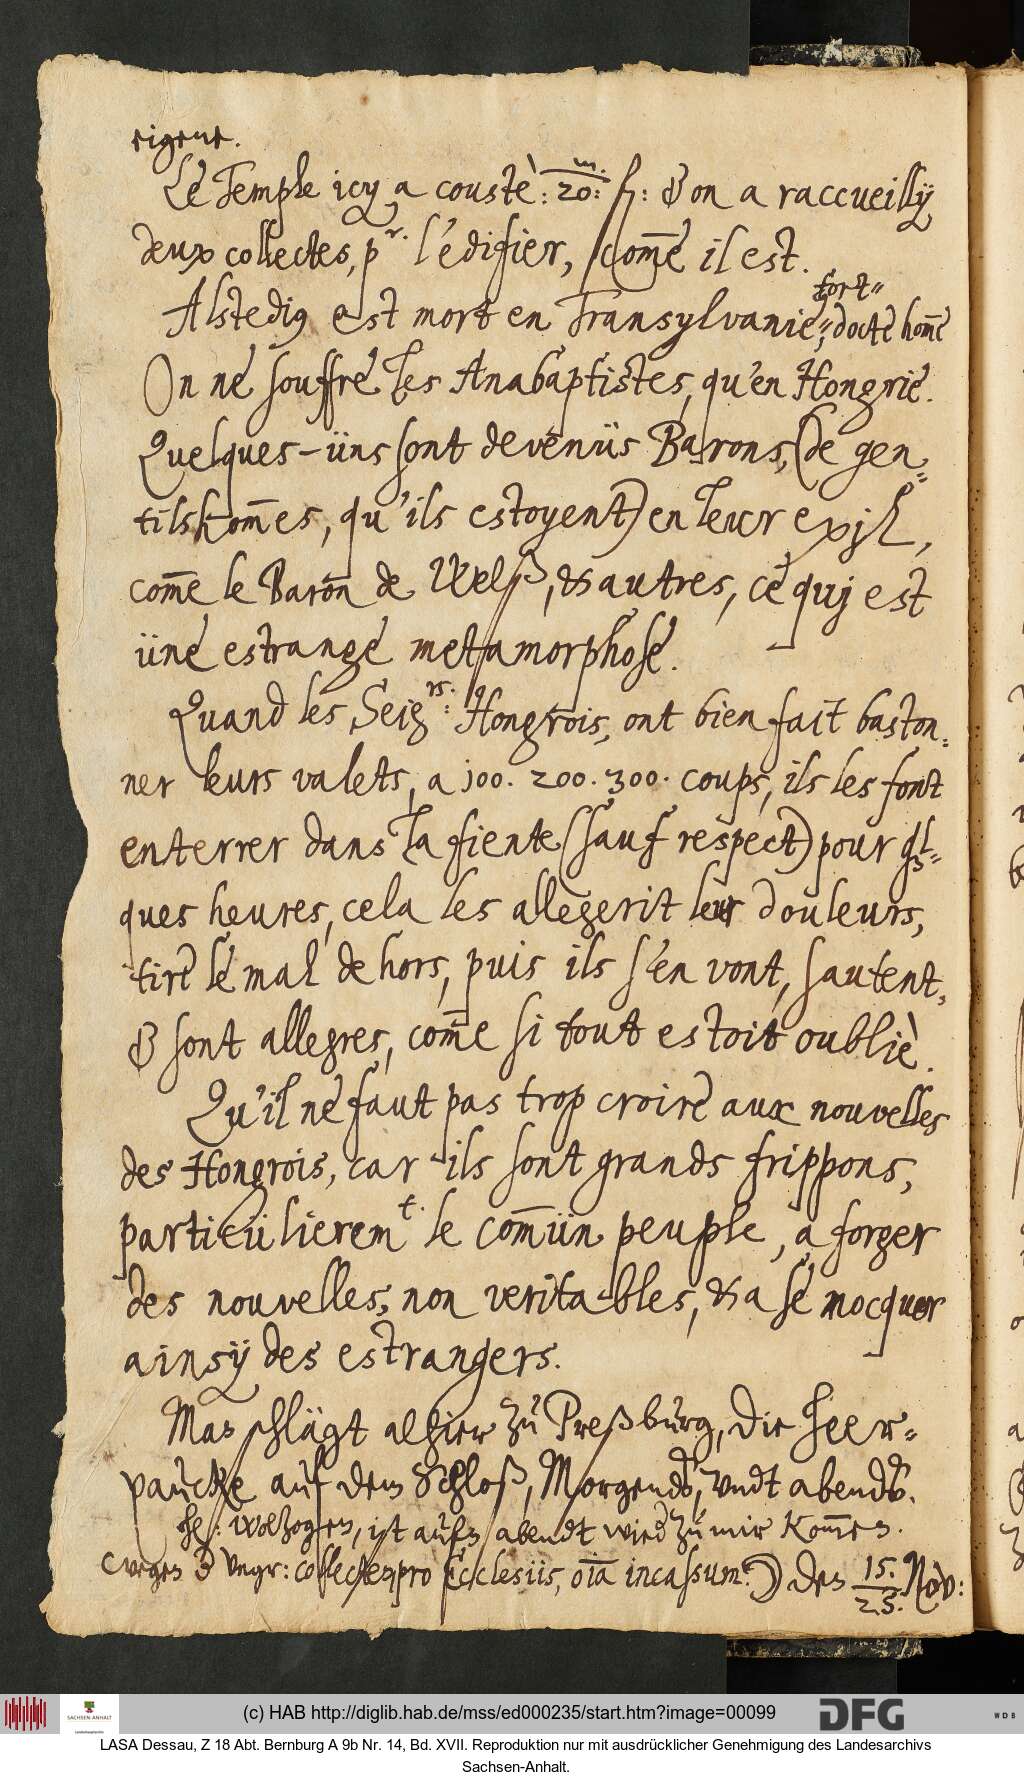 eigene.
Le Temple icy a coustè: 20: m. fl: & on a raccueillÿ
deux collectes, pr. l'edifier, com̅e il est.
Alstedig est mort en Transylvanie, fort docte hom̅e
On ne souffre les Anabaptistes, qu'en Hongrie.
Quelques-üns sont devenüs Barons, (de gen-
tilshom̅es, qu'ils estoyent) en leur exjl,
com̅e le Baron de Welß, & autres, ce quj est
üne estrange metamorphose.
Quand les Seigrs: Hongrois, ont bien fait baston-
ner leurs valets, a 100. 200. 300. coups, ils les font
enterrer dans la fiente (sauf respect) pour ql-
ques heures, cela les allegerit leur douleurs,
tire le mal dehors, puis ils s'en vont, sautent,
& sont allegres, com̅e si tout estoit oubliè.
Qu'il ne faut pas trop croire aux nouvelles
des Hongrois, car ils sont grands frippons,
particülieremt. le com̅ün peuple, a forger
des nouvelles, non veritables, & a se mocquer
ainsÿ des estrangers.
Man schlägt alhier zu Preßburg, die heer-
paucke auf dem Schloß, Morgends, undt abends.
He: Wolzogen, ist aufn abendt wied zu mir kom̅en.
(wegen d Ungr: collecten, pro Ecclesiis, oi̅a incassum?) den 15./25. Nov:
(c) HAB http://diglib.hab.de/mss/ed000235/start.htm?image=00099
SACHSEN-ANHALT
DFG
W D B
LASA Dessau, Z 18 Abt. Bernburg A 9b Nr. 14, Bd. XVII. Reproduktion nur mit ausdrücklicher Genehmigung des Landesarchivs
Sachsen-Anhalt.